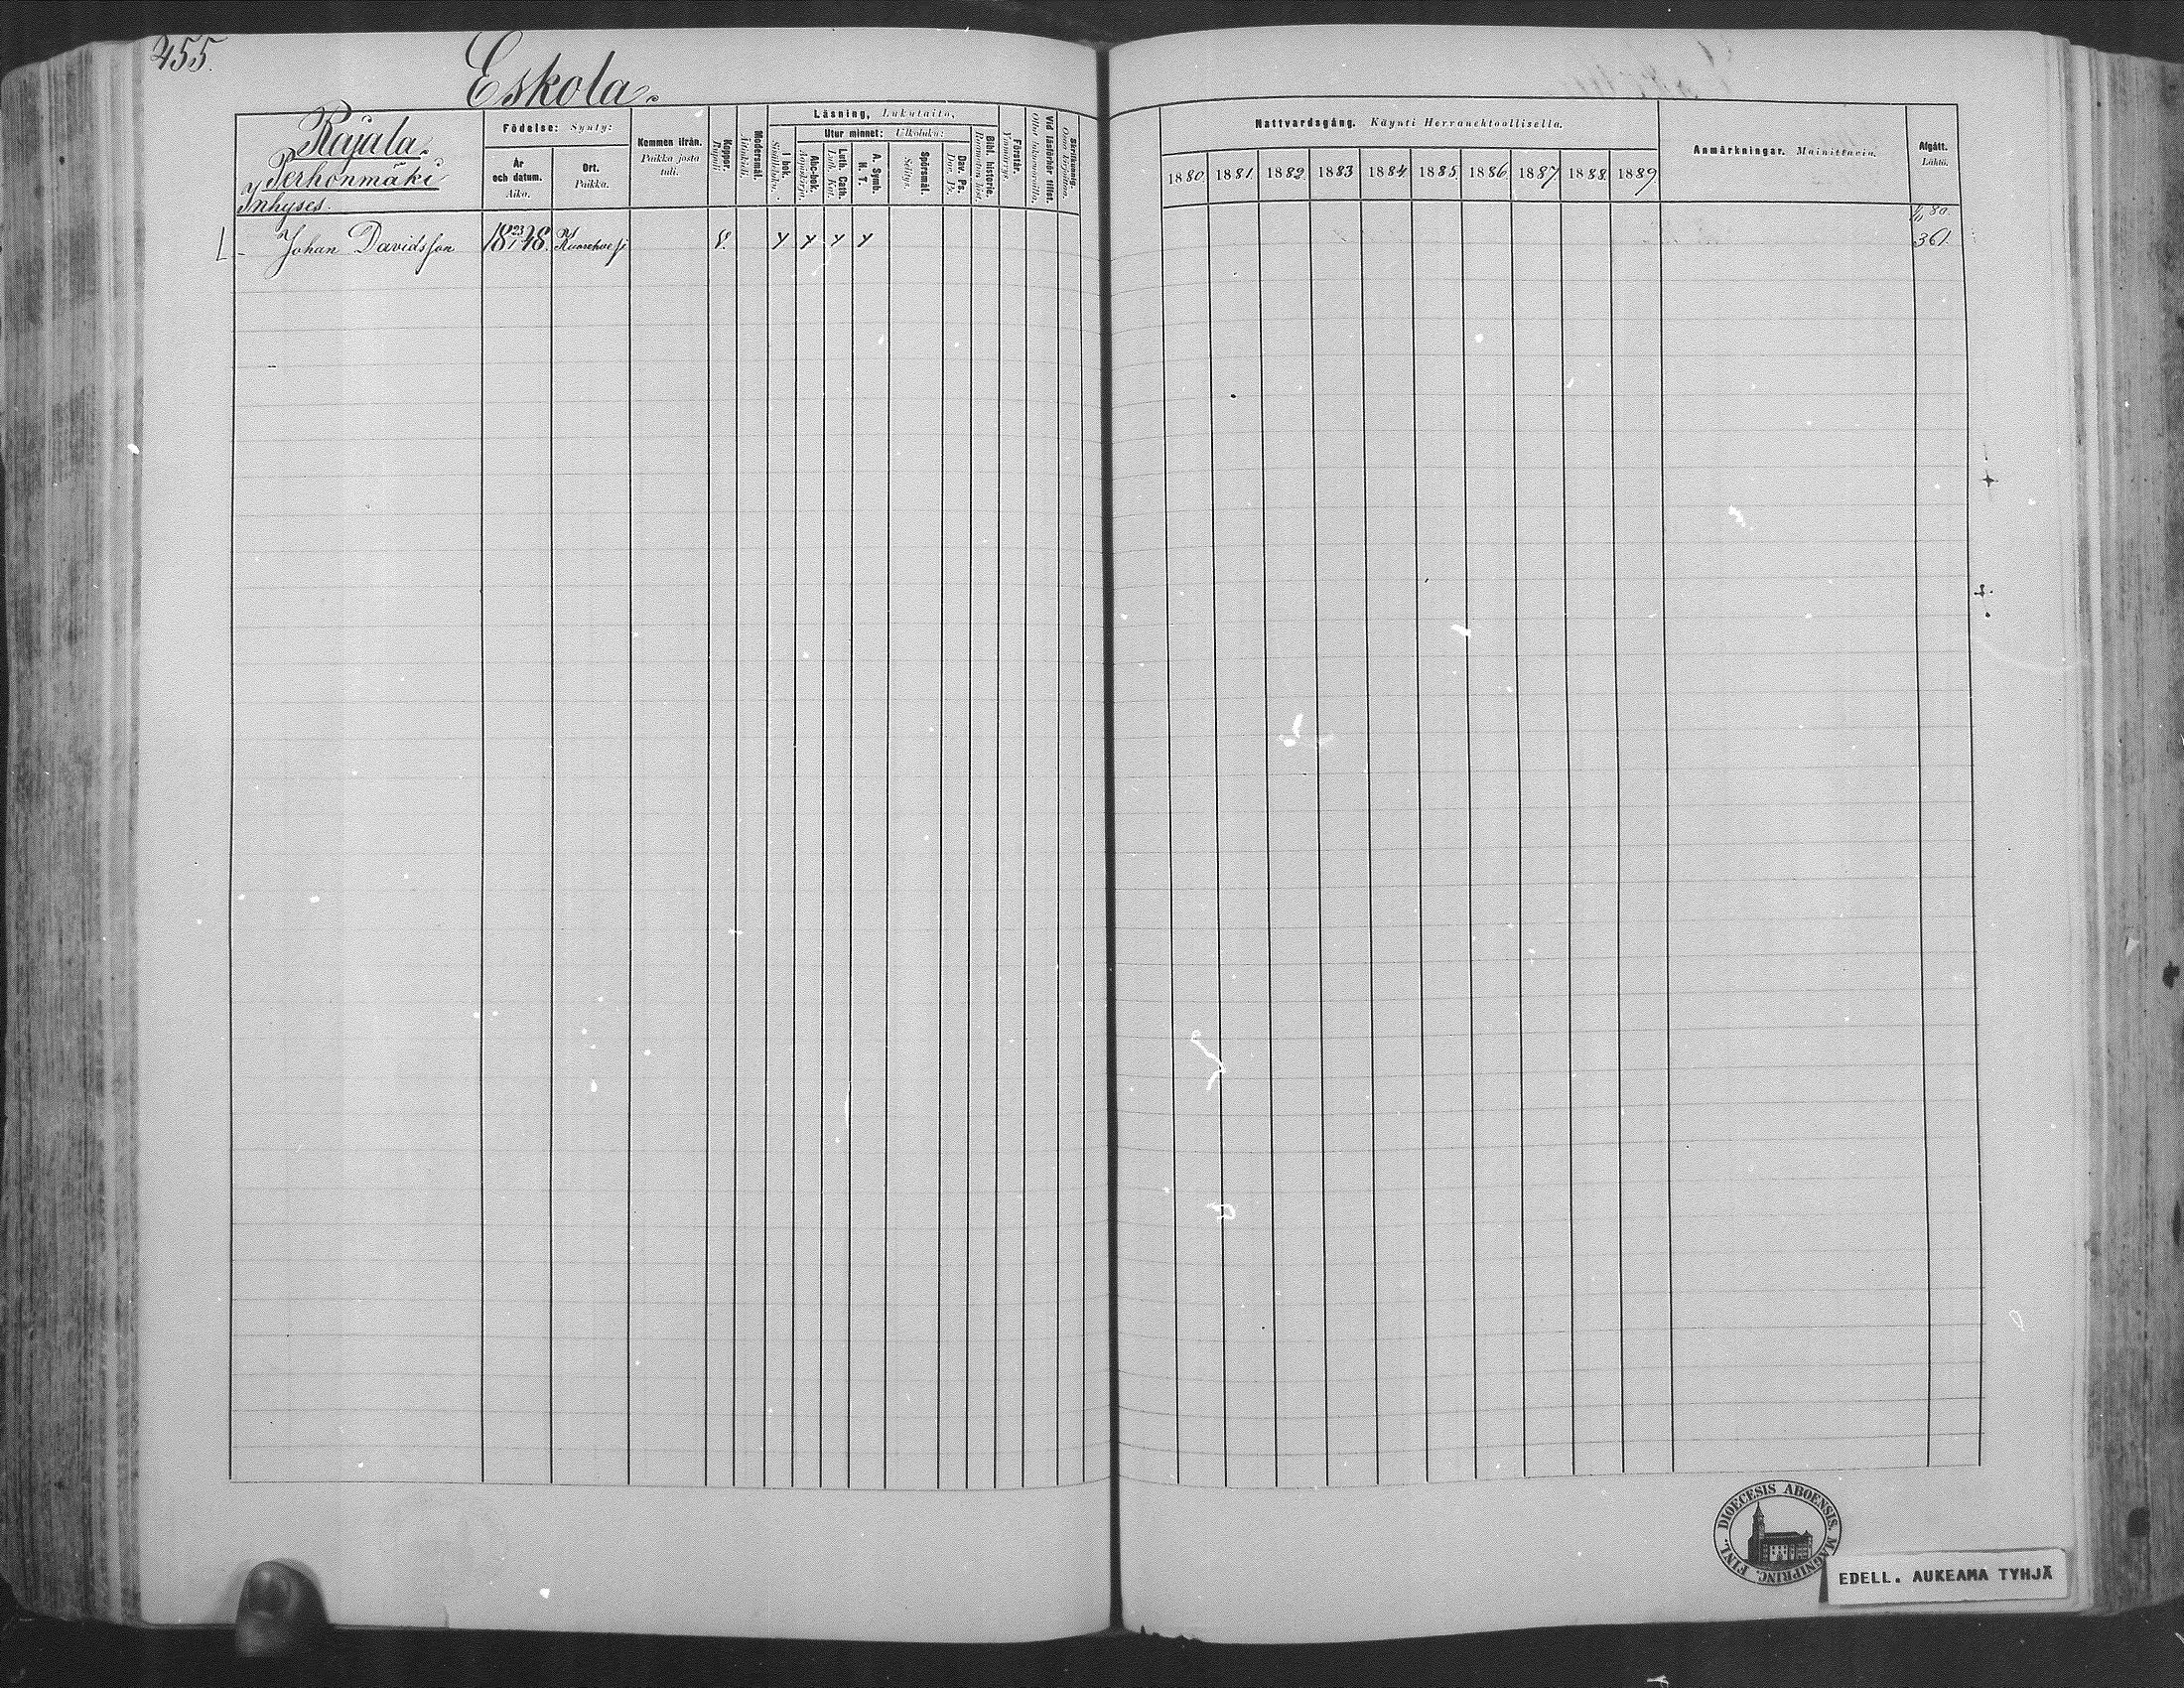 455.
Eskola.
Rajala.
Perhonmäki
Inhyses.
Födelse: Synty:
År och datum. Aika.
Ort. Paikka.
Kommen ifrån. Paikka josta tuli.
Koppor. Rupuli.
Modersmål. Äitinkieli.
Läsning, Lukutaito,
I bok. Sisältäluku.
Utur minnet: Ulkoluku:
Abc-bok. Aapiskirja.
Luth. Cath. Luth. Kat.
A. Symb. H. T.
Spörsmål. Selitys.
Dav. Ps. Dav. Ps.
Bibl. historie.
Förstår. Ymmärrys.
Vid läsförhör tillst. Ollut lukuluvuilla.
Skrifkunnig. Osaa kirjoittaa.
Nattvardsgång. Käynti Herranehtoollisella.
1880 1881 1882 1883 1884 1885 1886 1887 1888 1889
Anmärkningar. Mainittavia.
Afgått. Lähtö.
Johan Davidsson 18 23/1 48. v. y y y y
80.
361.
DIOECESIS ABOENSIS. MAGNIPRINC. FINL.
EDELL. AUKEAMA TYHJÄ